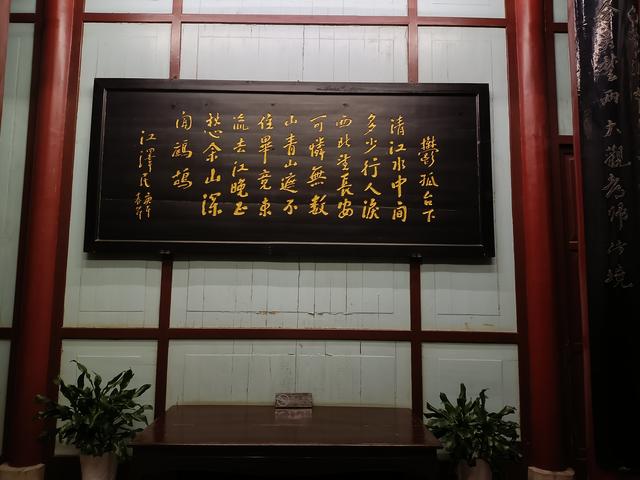 鬱孤台下
清江水中间
多少行人淚
西北望長安
可憐無數
山青山遮不
住畢竟東
流去江晚正
愁余山深
闻鷓鴣
江澤民